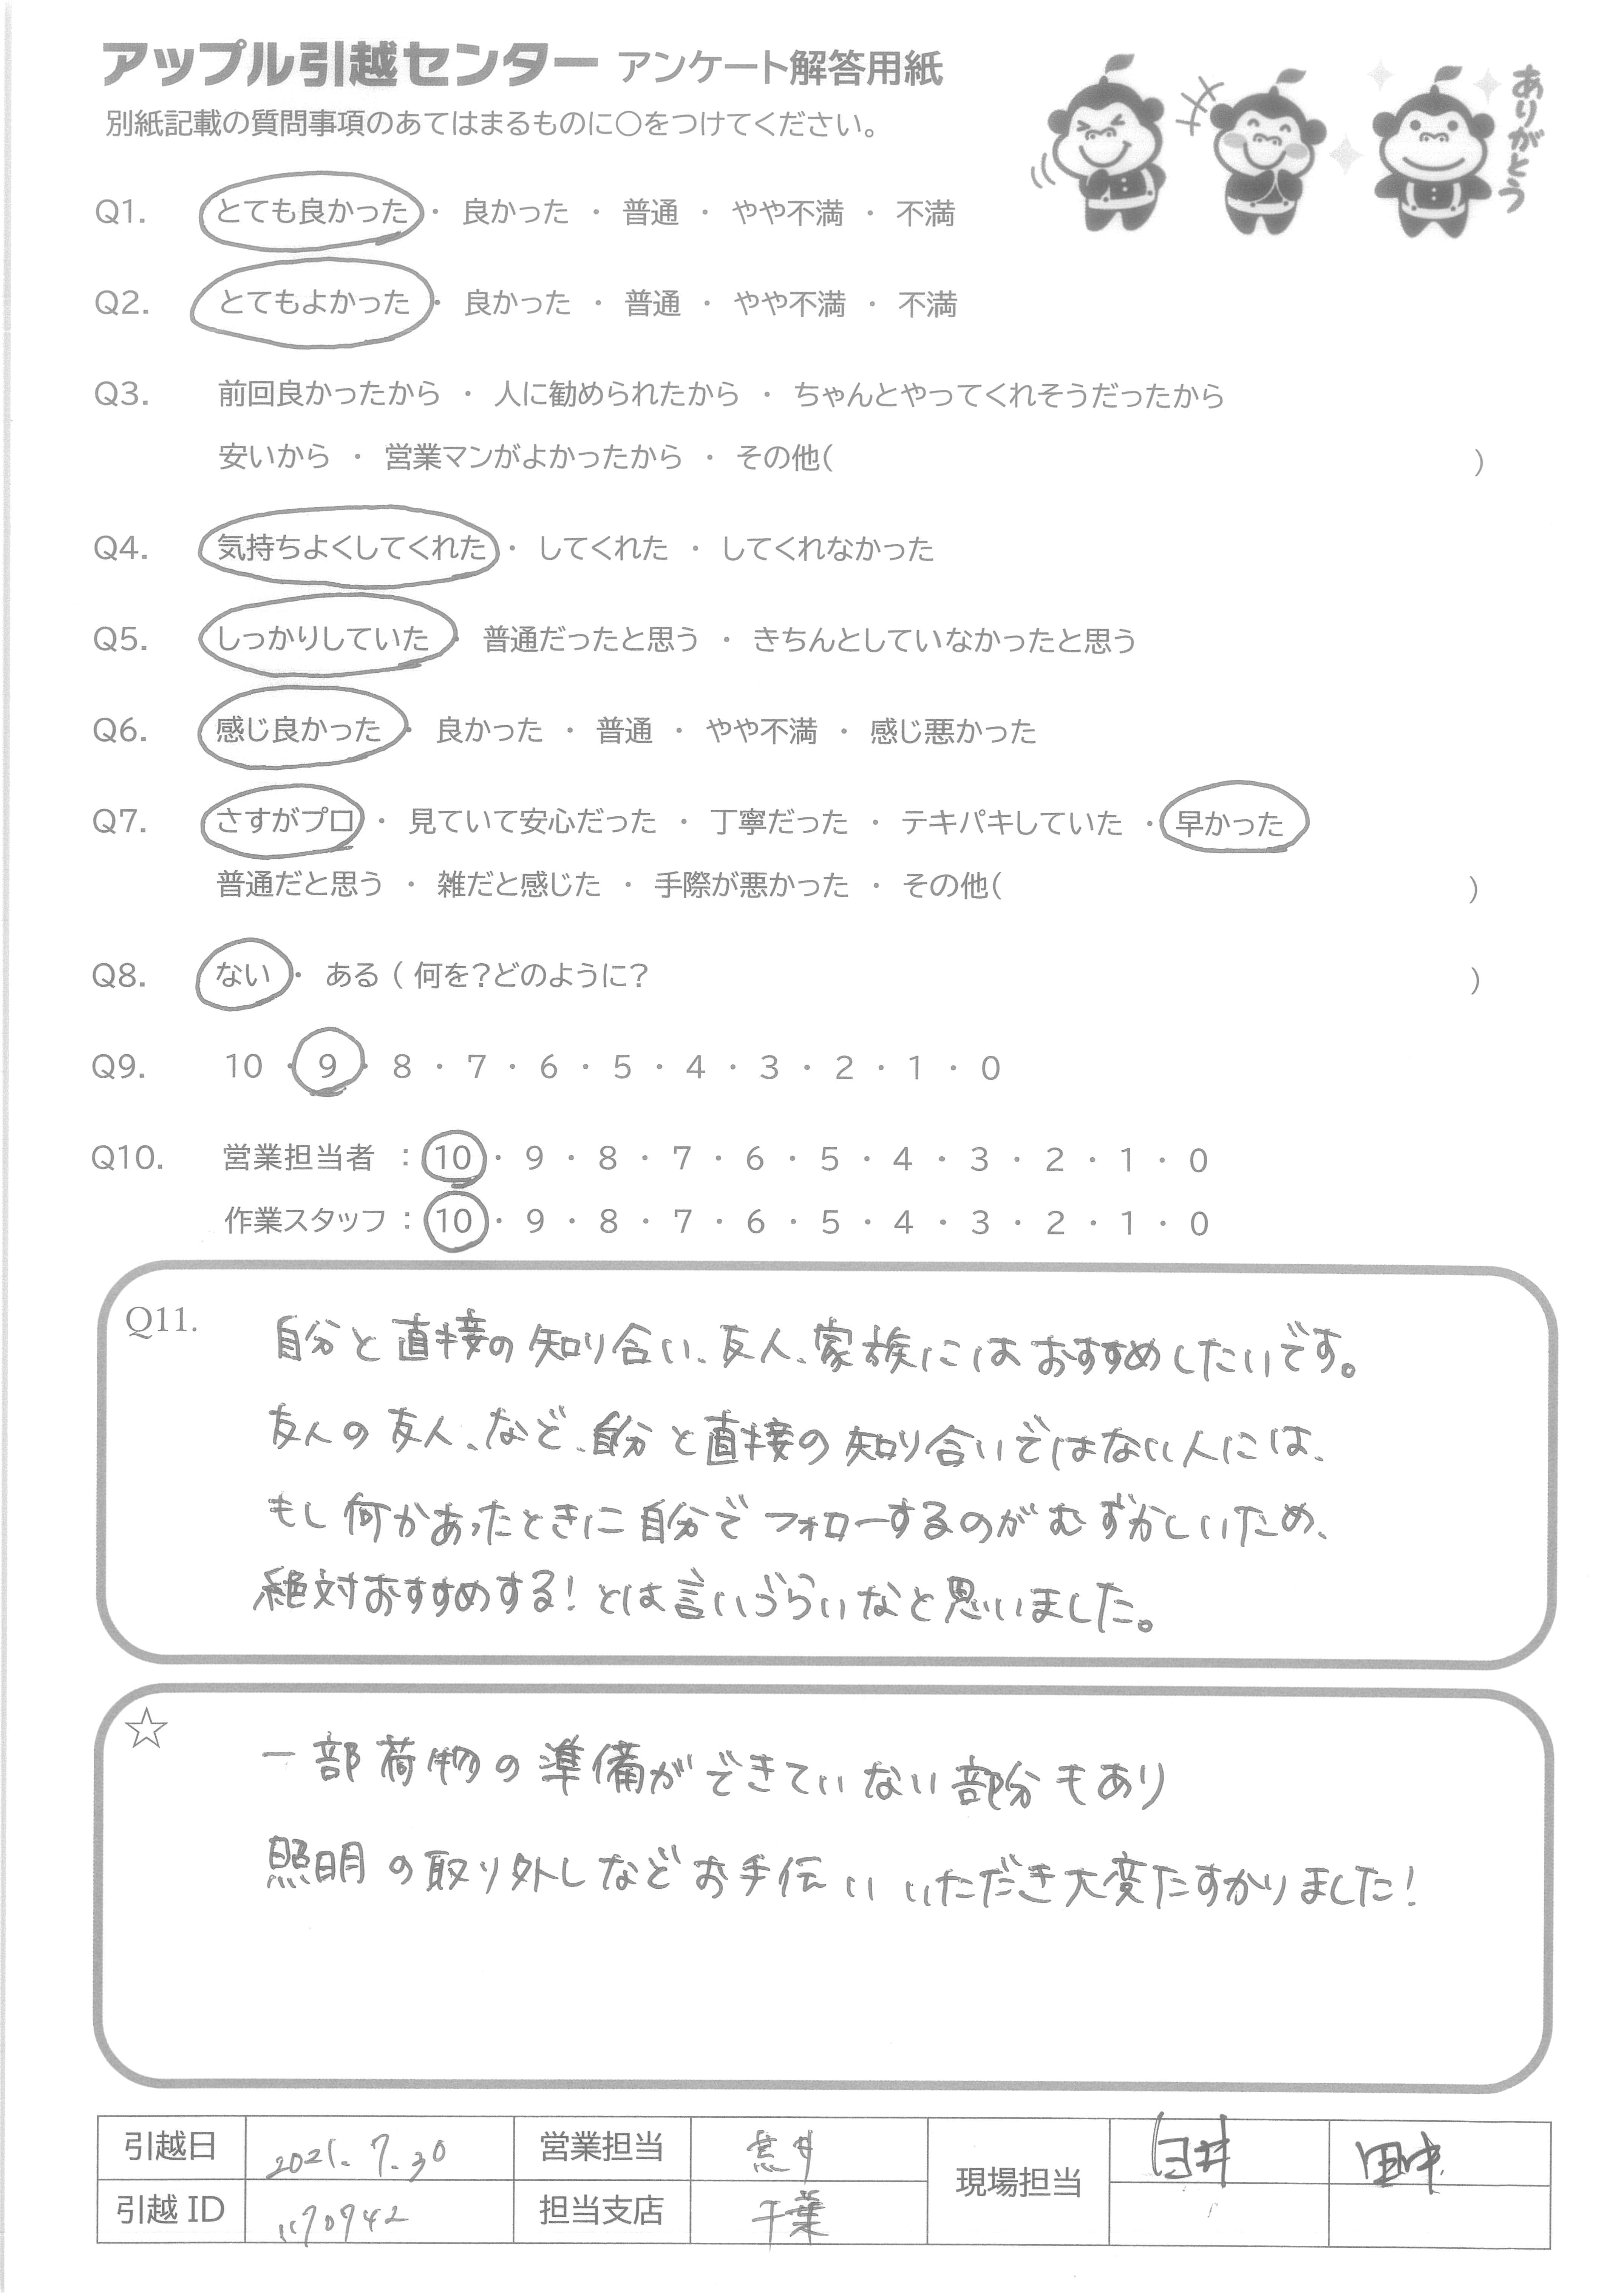 アップル引越センター アンケート解答用紙
別紙記載の質問事項のあてはまるものに○をつけてください。
ありがとう
Q1. とても良かった ・ 良かった ・ 普通 ・ やや不満 ・ 不満
Q2. とてもよかった ・ 良かった ・ 普通 ・ やや不満 ・ 不満
Q3. 前回良かったから ・ 人に勧められたから ・ ちゃんとやってくれそうだったから
安いから ・ 営業マンがよかったから ・ その他( )
Q4. 気持ちよくしてくれた ・ してくれた ・ してくれなかった
Q5. しっかりしていた ・ 普通だったと思う ・ きちんとしていなかったと思う
Q6. 感じ良かった ・ 良かった ・ 普通 ・ やや不満 ・ 感じ悪かった
Q7. さすがプロ ・ 見ていて安心だった ・ 丁寧だった ・ テキパキしていた ・ 早かった
普通だと思う ・ 雑だと感じた ・ 手際が悪かった ・ その他( )
Q8. ない ・ ある ( 何を?どのように? )
Q9. 10 ・ 9 ・ 8 ・ 7 ・ 6 ・ 5 ・ 4 ・ 3 ・ 2 ・ 1 ・ 0
Q10. 営業担当者 : 10 ・ 9 ・ 8 ・ 7 ・ 6 ・ 5 ・ 4 ・ 3 ・ 2 ・ 1 ・ 0
作業スタッフ : 10 ・ 9 ・ 8 ・ 7 ・ 6 ・ 5 ・ 4 ・ 3 ・ 2 ・ 1 ・ 0
Q11. 自分と直接の知り合い、友人、家族にはおすすめしたいです。
友人の友人、など、自分と直接の知り合いではない人には、
もし何かあったときに自分でフォローするのがむずかしいため、
絶対おすすめする!とは言いづらいなと思いました。
☆ 一部荷物の準備ができていない部分もあり
照明の取り外しなどお手伝いいただき大変たすかりました!
引越日 2021.7.30 営業担当 現場担当 臼井 田中
引越ID 担当支店 千葉